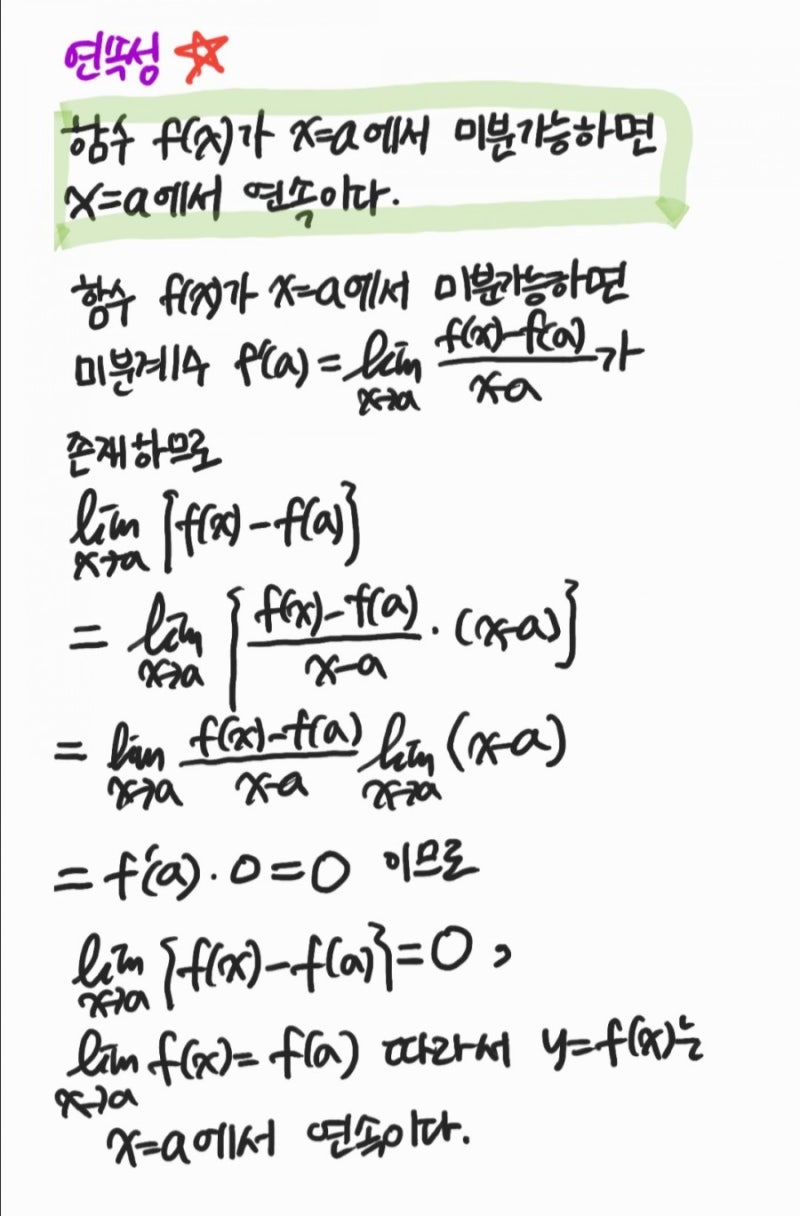 연뚝성 ☆
함수 f(x)가 x=a에서 미분가능하면
x=a에서 연속이다.
함수 f(x)가 x=a에서 미분가능하면
미분계수 f'(a) = lim_{x→a} \frac{f(x)-f(a)}{x-a} 가
존재하므로
lim_{x→a} {f(x)-f(a)}
= lim_{x→a} { \frac{f(x)-f(a)}{x-a} · (x-a) }
= lim_{x→a} \frac{f(x)-f(a)}{x-a} lim_{x→a} (x-a)
= f'(a)·0=0 이므로
lim_{x→a} {f(x)-f(a)}=0,
lim_{x→a} f(x)=f(a) 따라서 y=f(x)는
x=a에서 연속이다.